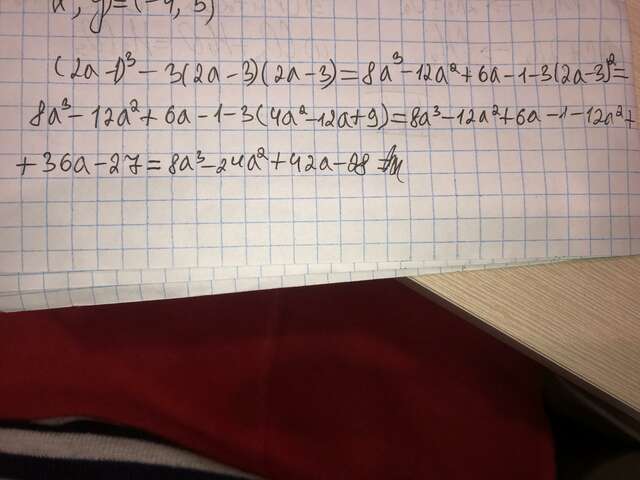 x, y) = (-4, 5)
(2a-1)³ - 3(2a-3)(2a-3) = 8a³ - 12a² + 6a - 1 - 3(2a-3)² =
8a³ - 12a² + 6a - 1 - 3(4a² - 12a + 9) = 8a³ - 12a² + 6a - 1 - 12a² +
+ 36a - 27 = 8a³ - 24a² + 42a - 28